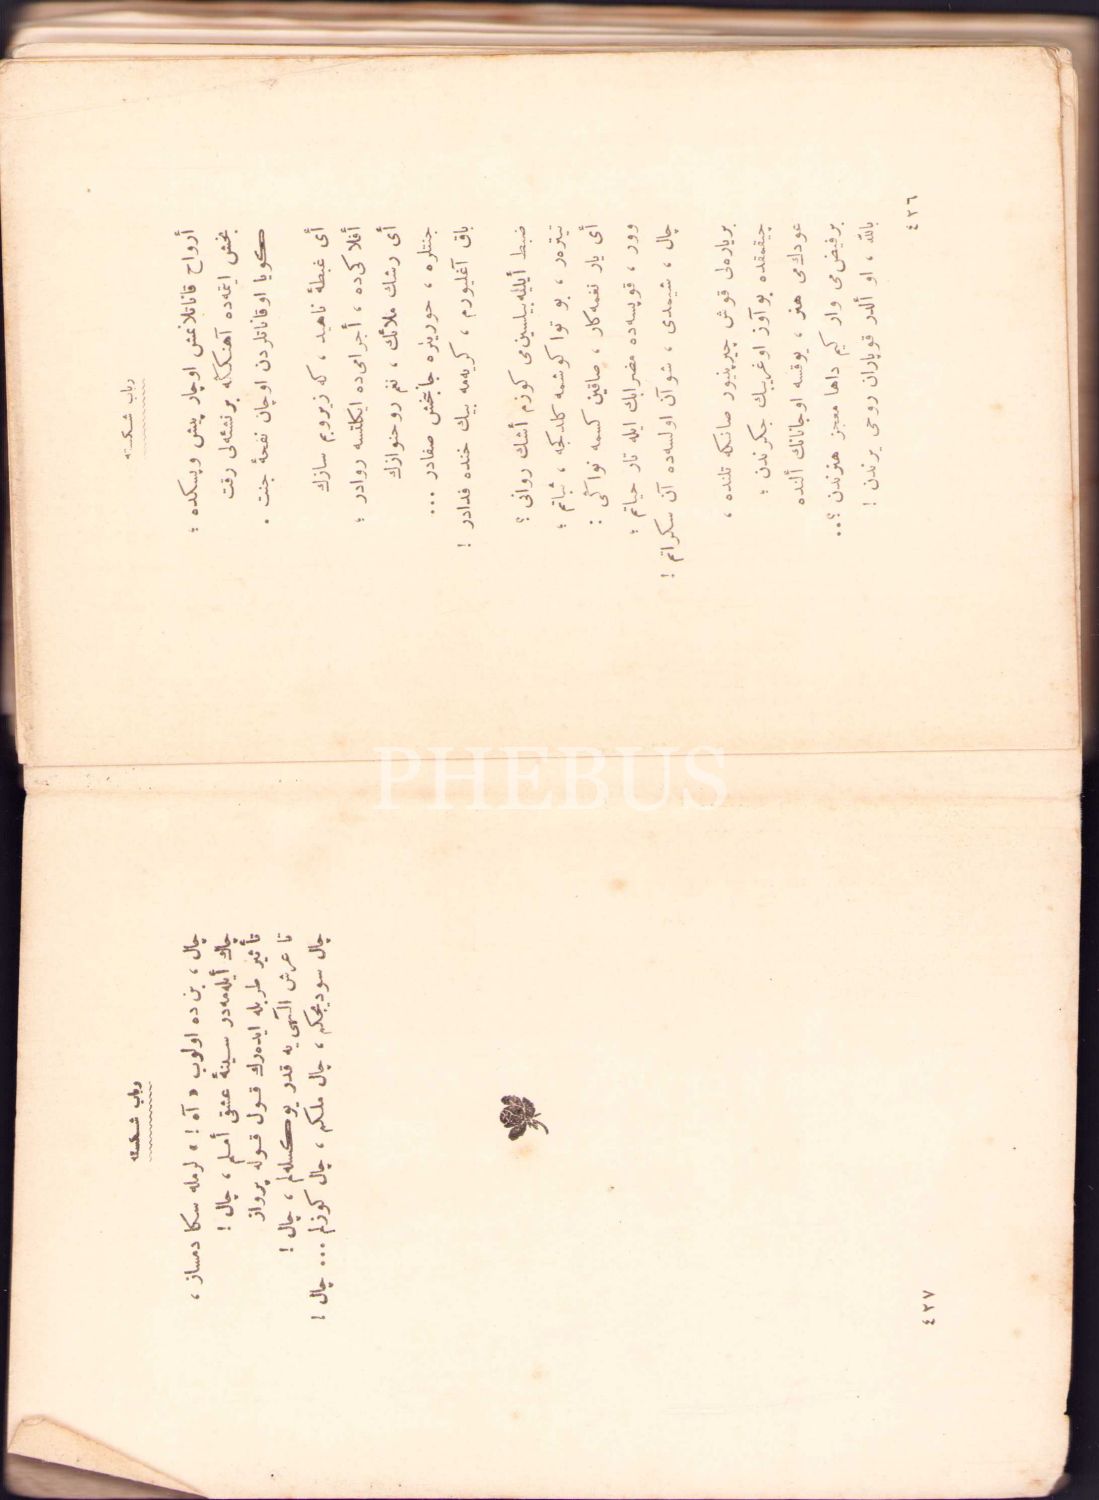 رباب شكسته
أرواح قاناتلاغش اوچار پيش و پسكده ؛
بخش ايتمه‌ده آهنككه بر نشئه‌لى رقت
كويا اوقاناتلردن اوچان نفحۀ جنت .
أى غبطۀ ناهيد ، كه زيروبم سازك
أفلاكى ده ، أجرامى ده ايكلتسه روادر ؛
أى رشك ملائك ، نغم روحنوازك
جنتلره ، حوريلره جانبخش صفادر ...
باق آغليورم ، كريه‌مه بيك خنده فدادر !
ضبط أيليه‌بيلسين‌مى كوزم أشك روانى ؟
تيتره‌ر ، بو نوا كوشمه كلدكجه ، ثباتم ؛
أى يار نغمه‌كار ، صاقين كسمه نواكى :
وور ، قوپسه‌ده مضرابك ايله تار حياتم ؛
چال ، شيمدى ، شو آن اولسه‌ده آن سكراتم !
بر ياره‌لى قوش چيرپنيور صانكه تلنده ،
چيقمقده بو آواز او غريبك جكرندن ؛
عودك‌مى هنر ، يوقسه او جانانك ألنده
بر فيض‌مى وار كيم داها معجز هنرندن ؟..
بالله ، او ألدر قوپاران روحى يرندن !
٤٢٦
رباب شكسته
چال ، بن ده اولوب « آه ! » لرمله سكا دمساز ،
چاك أيله‌مه‌در سينۀ عشقى أملم ، چال !
تأثير طربله ايده‌رك قول قوله پرواز
تا عرش الٓهى يه قدر يوكسله‌لم ، چال !
چال سوديجكم ، چال ملكم ، چال كوزلم ... چال !
٤٢٧
PHEBUS